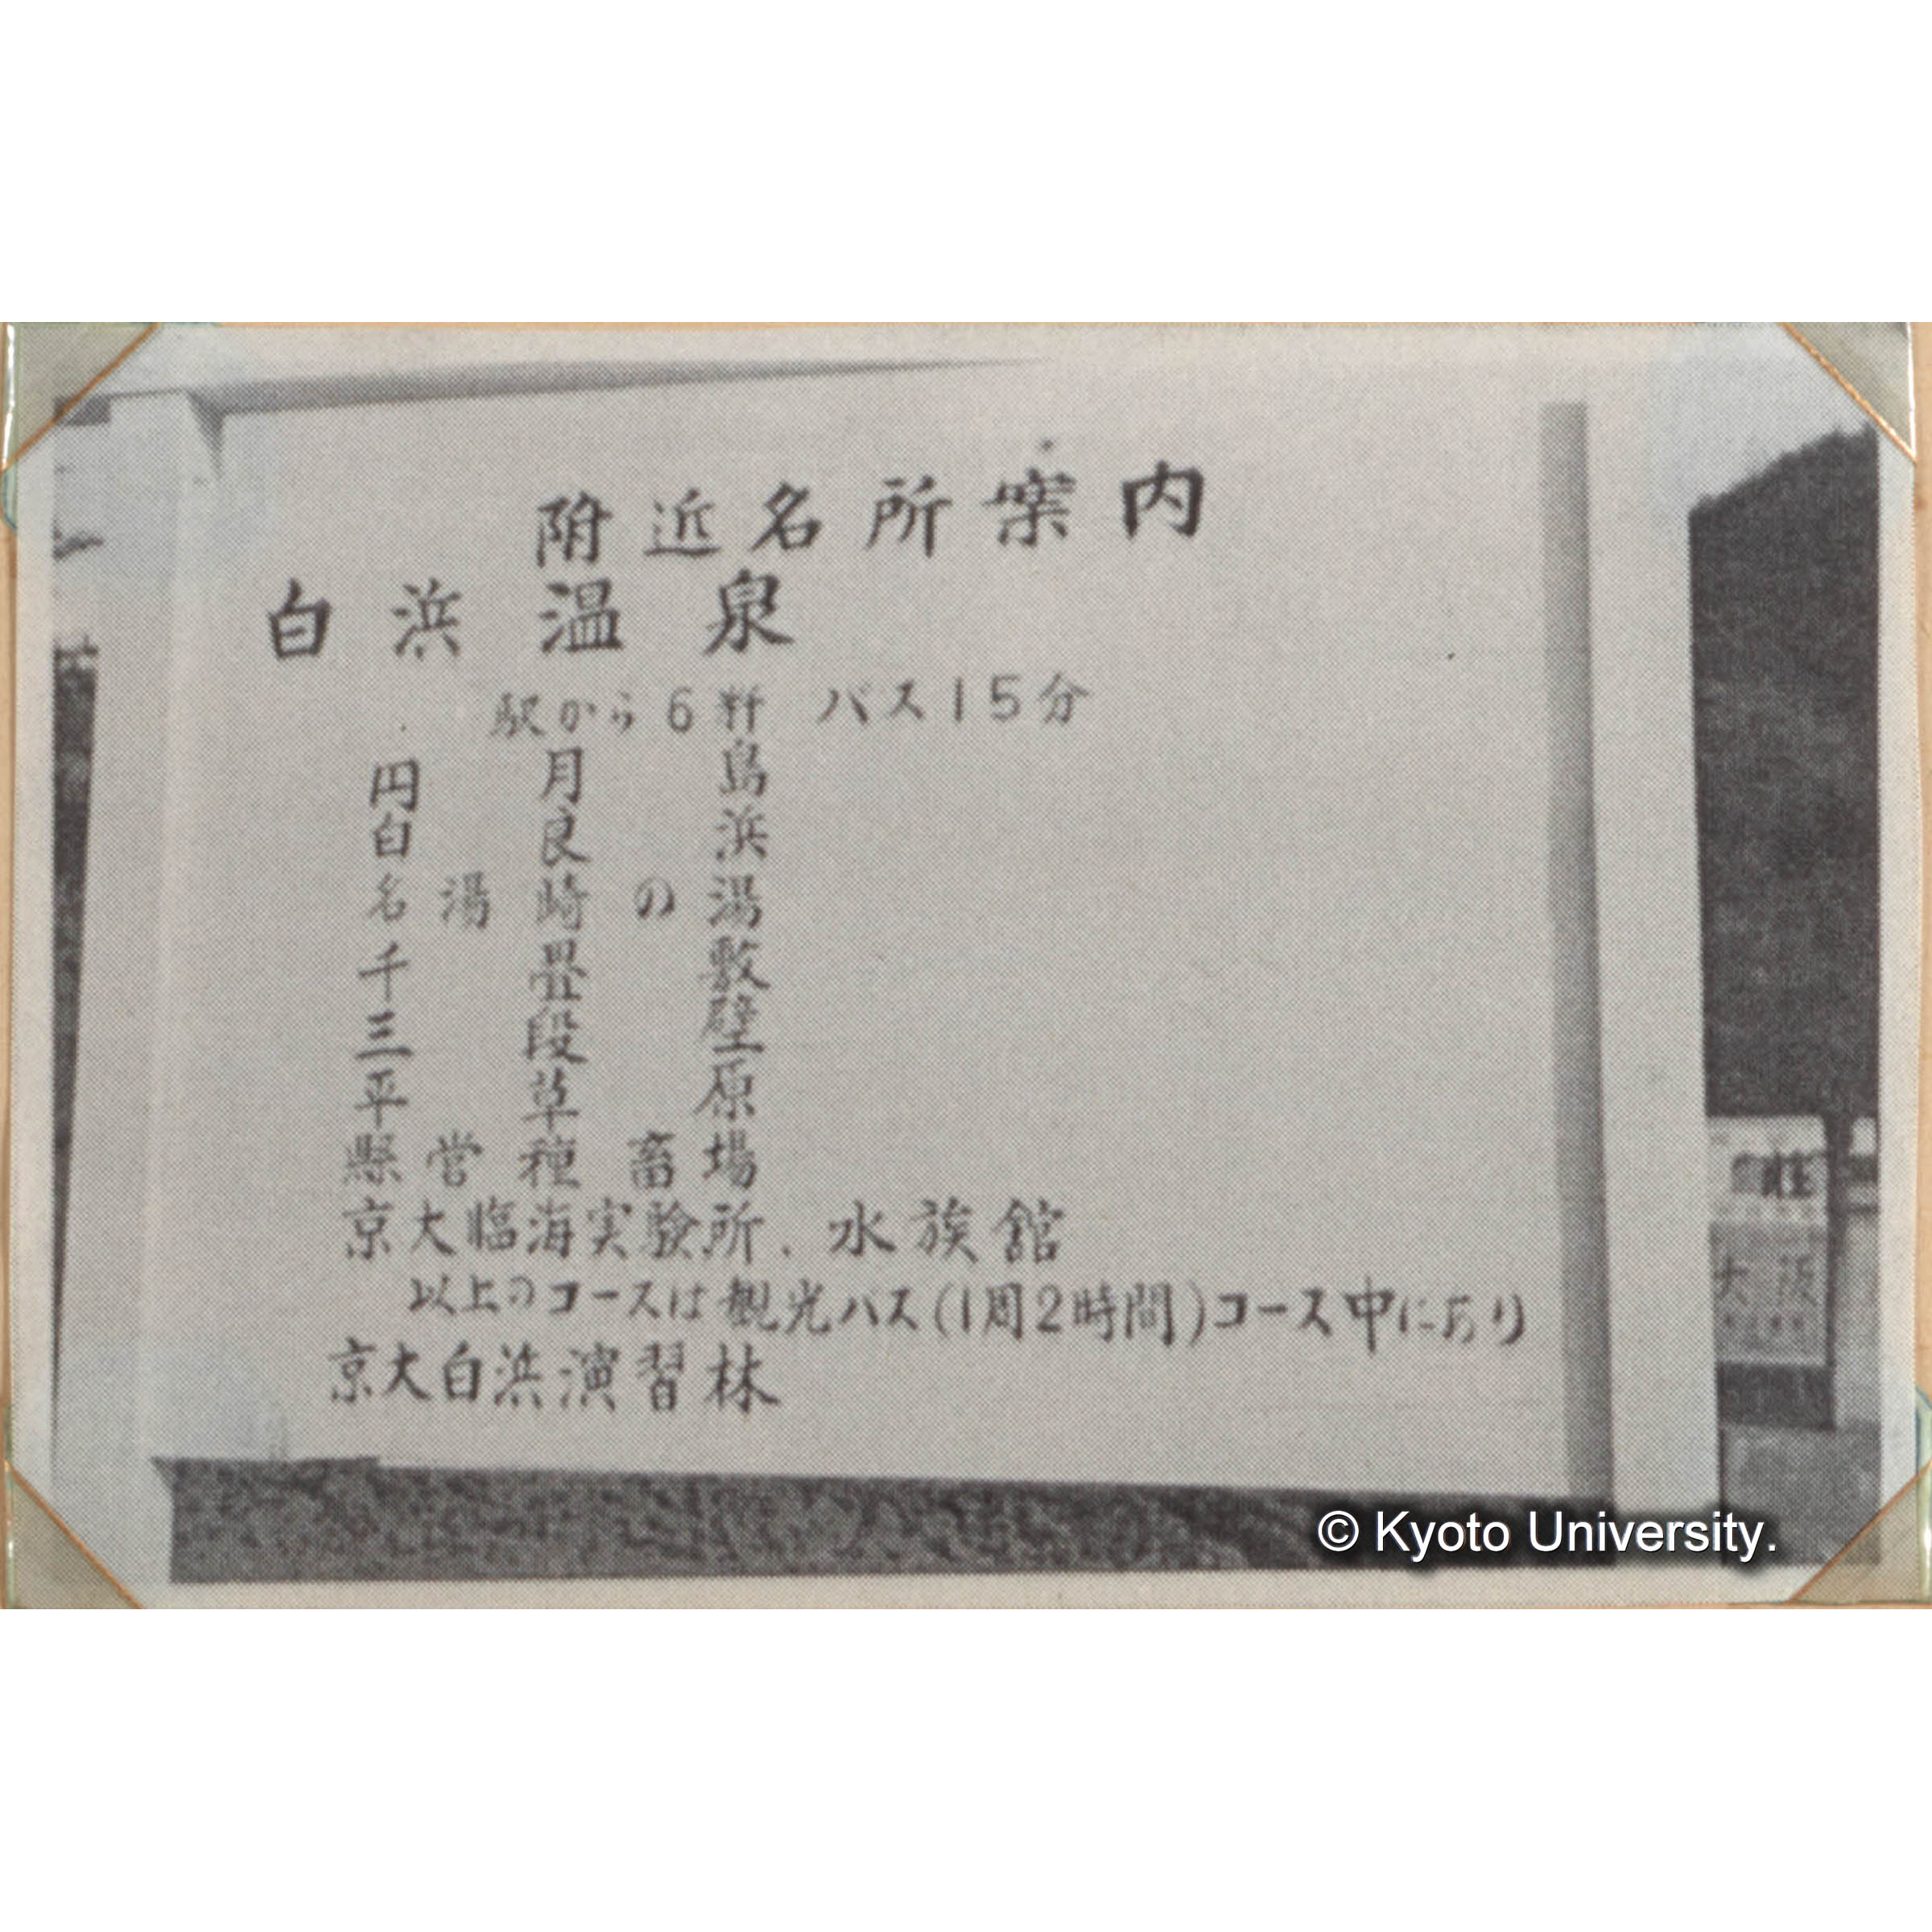 附近名所案内
白浜温泉
駅から6粁 バス15分
円月島
白良浜
名湯崎の湯
千畳敷
三段壁
平草原
県営種畜場
京大臨海実験所．水族館
以上のコースは観光バス(1周2時間)コース中にあり
京大白浜演習林
荘
大阪
© Kyoto University.